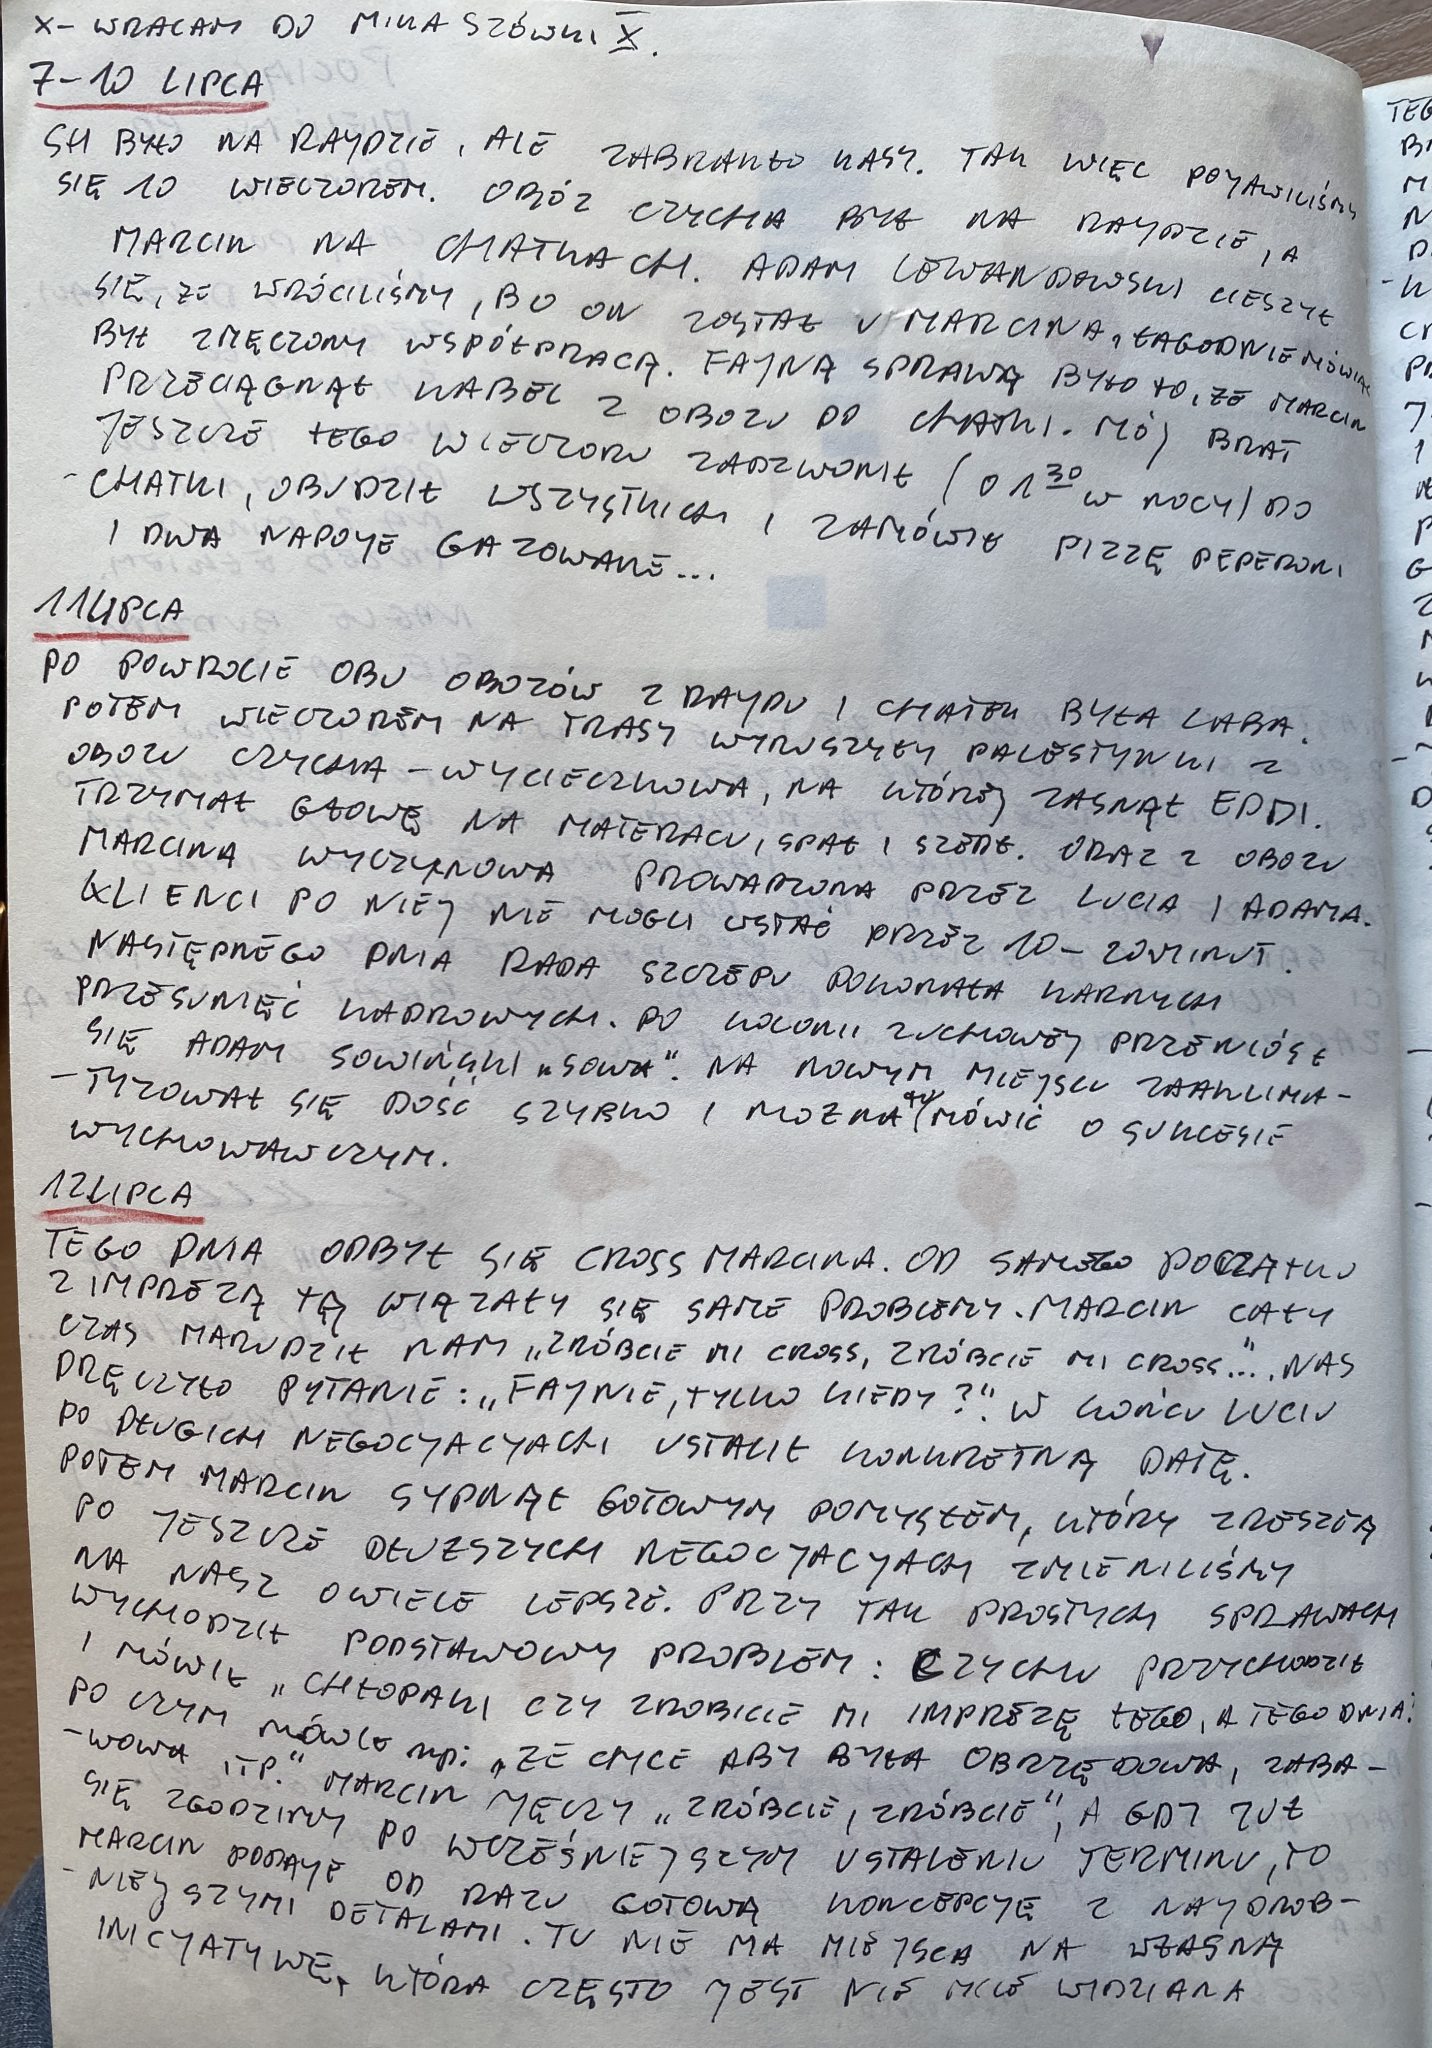 X - WRACAM DO MIKASZÓWKI X.
7-10 LIPCA
SH BYŁO NA RAJDZIE, ALE ZABRAKŁO KASY. TAK WIĘC POJAWILIŚMY
SIĘ 10 WIECZOREM. OBÓZ CZYCHA BYŁ NA RAJDZIE, A
MARCIN NA CHATKACH. ADAM LEWANDOWSKI CIESZYŁ
SIĘ, ŻE WRÓCILIŚMY, BO ON ZOSTAŁ U MARCINA, ŁAGODNIE MÓWIĄC
BYŁ ZMĘCZONY WSPÓŁPRACĄ. FAJNĄ SPRAWĄ BYŁO TO, ŻE MARCIN
PRZECIĄGNĄŁ KABEL Z OBOZU DO CHATKI. MÓJ BRAT
JESZCZE TEGO WIECZORU ZADZWONIŁ (O 1 30 W NOCY) DO
- CHATKI, OBUDZIŁ WSZYSTKICH I ZAMÓWIŁ PIZZĘ PEPERONI
I DWA NAPOJE GAZOWANE...
11 LIPCA
PO POWROCIE OBU OBOZÓW Z RAJDU I CHATEK BYŁA LABA.
POTEM WIECZOREM NA TRASY WYRUSZYŁY PALESTYNKI Z
OBOZU CZYCHA - WYCIECZKOWA, NA KTÓREJ ZASNĄŁ EDDI.
TRZYMAŁ GŁOWĘ NA MATERACU, SPAŁ I SZEDŁ. ORAZ Z OBOZU
MARCINA WYCZYNOWA PROWADZONA PRZEZ LUCIA I ADAMA.
KLIENCI PO NIEJ NIE MOGLI WSTAĆ PRZEZ 10-20 MINUT.
NASTĘPNEGO DNIA RADA SZCZEPU DOKONAŁA KARNYCH
PRZESUNIĘĆ KADROWYCH. PO KOLONII ZUCHOWEJ PRZENIÓSŁ
SIĘ ADAM SOWIŃSKI „SOWA". NA NOWYM MIEJSCU ZAAKLIMA-
- TYZOWAŁ SIĘ DOŚĆ SZYBKO I MOŻNA TU MÓWIĆ O SUKCESIE
WYCHOWAWCZYM.
12 LIPCA
TEGO DNIA ODBYŁ SIĘ CROSS MARCINA. OD SAMEGO POCZĄTKU
Z IMPREZĄ TĄ WIĄZAŁY SIĘ SAME PROBLEMY. MARCIN CAŁY
CZAS MARUDZIŁ NAM „ZRÓBCIE MI CROSS, ZRÓBCIE MI CROSS...". NAS
DRĘCZYŁO PYTANIE: „FAJNIE, TYLKO KIEDY?". W KOŃCU LUCIU
PO DŁUGICH NEGOCJACJACH USTALIŁ KONKRETNĄ DATĘ.
POTEM MARCIN SYPNĄŁ GOTOWYM POMYSŁEM, KTÓRY ZRESZTĄ
PO JESZCZE DŁUŻSZYCH NEGOCJACJACH ZMIENILIŚMY
NA NASZ O WIELE LEPSZE. PRZY TAK PROSTYCH SPRAWACH
WYCHODZIŁ PODSTAWOWY PROBLEM: CZYCHU PRZYCHODZIŁ
I MÓWIŁ „CHŁOPAKI CZY ZROBICIE MI IMPREZĘ TEGO, A TEGO DNIA?
PO CZYM MÓWIŁ np: „ŻE CHCE ABY BYŁA OBRZĘDOWA, ZABA-
- WOWA ITP." MARCIN MĘCZY „ZRÓBCIE, ZRÓBCIE", A GDY JUŻ
SIĘ ZGODZIMY PO WCZEŚNIEJSZYM USTALENIU TERMINU, TO
MARCIN PODAJE OD RAZU GOTOWĄ KONCEPCJĘ Z NAJDROB-
- NIEJSZYMI DETALAMI. TU NIE MA MIEJSCA NA WŁASNĄ
INICJATYWĘ, KTÓRA CZĘSTO JEST NIE MILE WIDZIANA